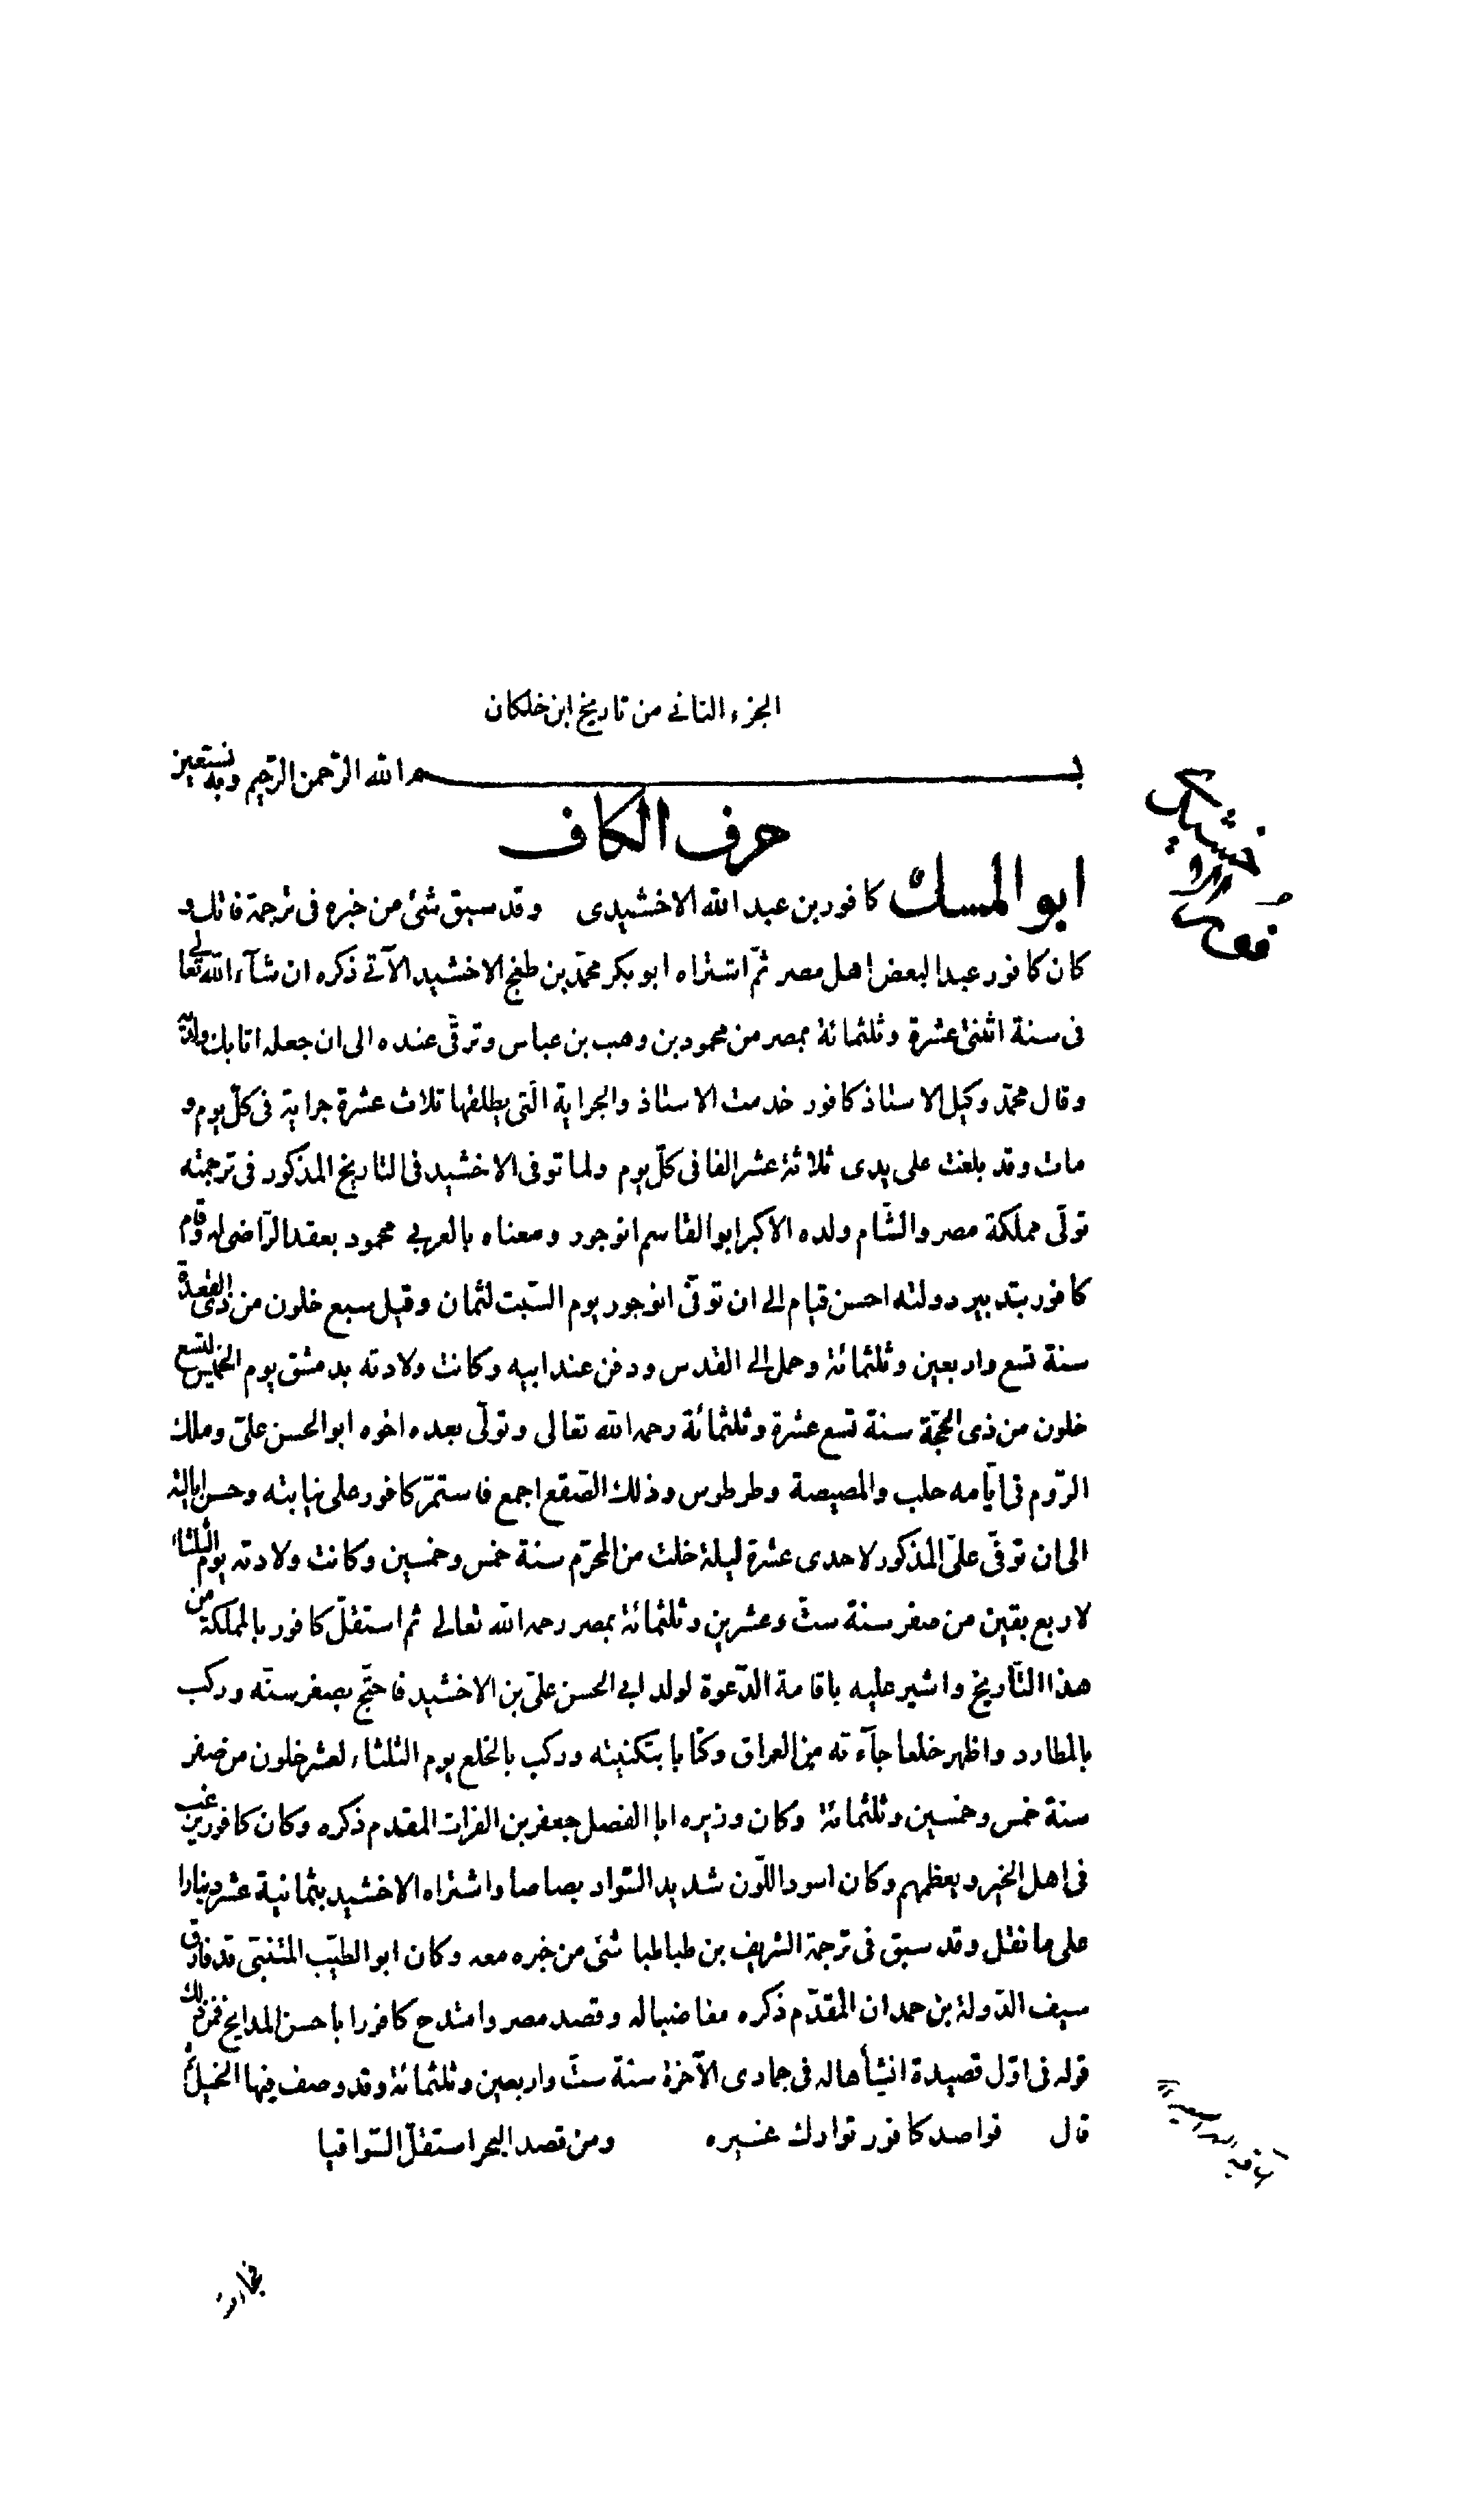 الجزء الثانى من تاريخ ابن خلكان
بسم الله الرّحمن الرّحيم وبه نستعين
حرف الكاف
ابو المسك كافور بن عبد الله الاخشيدى وقد سبق شئ من خبره فى ترجمة فاتك و
كان كافور عبدا لبعض اهل مصر ثمّ اشتراه ابو بكر محمّد بن طغج الاخشيد الآتى ذكره ان شآء الله تعالى
فى سنة اثنتى عشرة وثلثمائة بمصر من محمود بن وهب بن عباس وترقّى عنده الى ان جعله اتابك ولديه
وقال محمّد وكيل الاستاذ كافور خدمت الاستاذ والجراية الّتى يطلقها ثلاث عشرة جراية فى كلّ يوم و
مات وقد بلغت على يدى ثلاثة عشر الفا فى كلّ يوم ولما توفى الاخشيد فى التاريخ المذكور فى ترجمته
تولّى مملكة مصر والشّام ولده الاكبر ابو القاسم انوجور ومعناه بالعربى محمود بعقد الرّاضى له وقام
كافور بتدبير دولته احسن قيام الى ان توفّى انوجور يوم السّبت لثمان وقيل سبع خلون من ذى القعدة
سنة تسع واربعين وثلثمائة وحمل الى القدس ودفن عند ابيه وكانت ولادته بدمشق يوم الخميس لتسع
خلون من ذى الحجّة سنة تسع عشرة وثلثمائة رحمه الله تعالى وتولّى بعده اخوه ابو الحسن علىّ وملك
الرّوم فى ايّامه حلب والمصيصة وطرطوس وذلك الصّقع اجمع فاستمرّ كافور على نيابته وحسن ايالته
الى ان توفّى علىّ المذكور لاحدى عشرة ليلة خلت من المحرّم سنة خمس وخمسين وكانت ولادته يوم الثلثاء
لاربع بقين من صفر سنة ستّ وعشرين وثلثمائة بمصر رحمه الله تعالى ثم استقلّ كافور بالمملكة من
هذا التّاريخ واشير عليه باقامة الدّعوة لولد ابى الحسن علىّ بن الاخشيد فاحتجّ بصغر سنّه وركب
بالمطارد واظهر خلعا جآءته من العراق وكتابا بتكنيته وركب بالخلع يوم الثلثاء لعشر خلون من صفر
سنة خمس وخمسين وثلثمائة وكان وزيره ابا الفضل جعفر بن الفرات المقدم ذكره وكان كافور يرغب
فى اهل الخير ويعظمهم وكان اسود اللّون شديد السّواد بصاصا واشتراه الاخشيد بثمانية عشر دينارا
على ما نقل وقد سبق فى ترجمة الشريف بن طباطبا شئ من خبره معه وكان ابو الطيّب المتنبّى قد فارق
سيف الدّولة بن حمدان المقدّم ذكره مغاضبا له وقصد مصر وامتدح كافورا باحسن المدايح فمن ذلك
قوله فى اوّل قصيدة انشأها له فى جمادى الآخرة سنة ستّ واربعين وثلثمائة وقد وصف فيها الخيل ثم
قال قواصد كافور توارك غيره ومن قصد البحر استقلّ السّواقيا